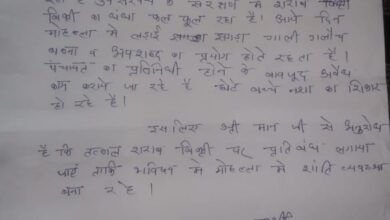 रहा है। उपसरपंच के संरक्षण में शराब
बिक्री का धंधा फल फूल रहा है। आये दिन
मोहल्ला में लड़ाई झगड़ा गाली गलौच
व अपशब्द का प्रयोग होते रहता है।
पंचायत का प्रतिनिधी होने के बावजूद अवैध
काम कराये जा रहे हैं छोटे बच्चे नशा का शिकार
हो रहे हैं।
इसलिए श्री मान जी से अनुरोध
है कि तत्काल शराब बिक्री पर प्रतिबंध लगाया
जाएं ताकि भविष्य में मोहल्ला में शांति व्यवस्था
बना रहे।